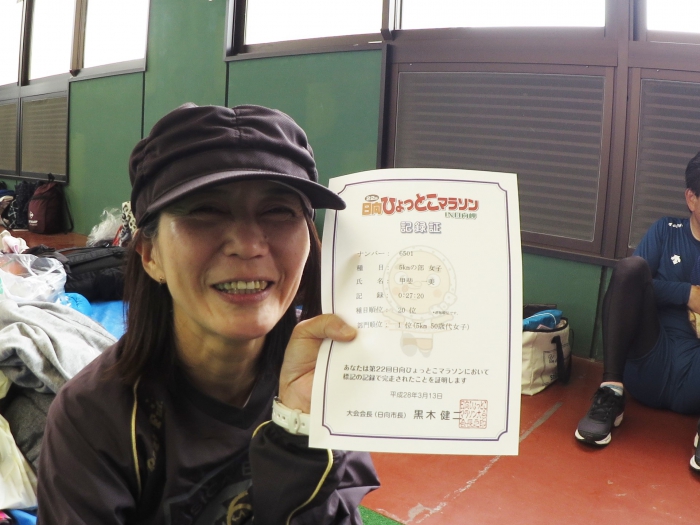 日向ひょっとこマラソン
IN日向岬
記録証
ナンバー: 6501
種 目: 5kmの部 女子
氏 名: 甲斐 一美
記 録: 0:27:20
種目順位: 20 位
部門順位: 1 位(5km 50歳代女子)
あなたは第22回日向ひょっとこマラソンにおいて
標記の記録で完走されたことを証明します
平成28年3月13日
大会会長(日向市長) 黒木 健二